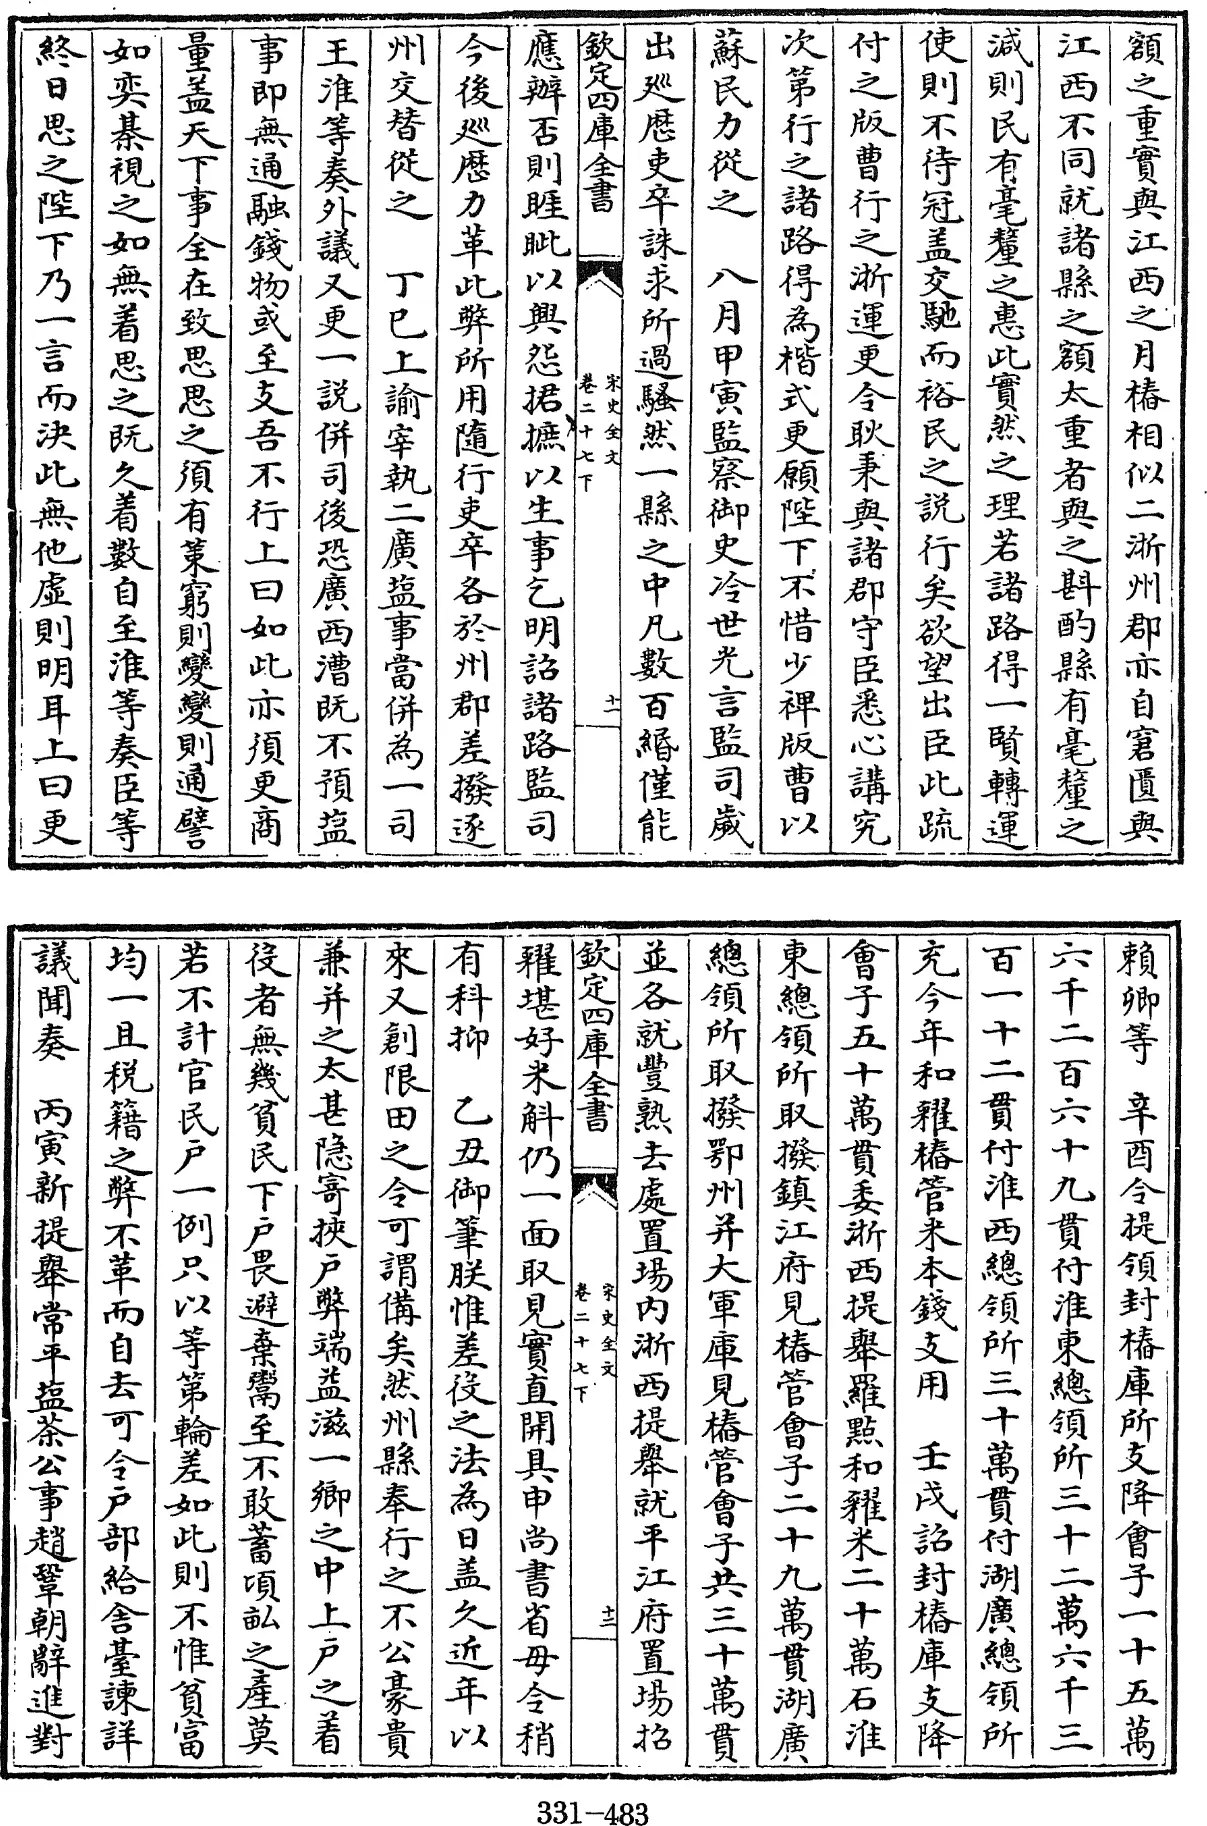 額之重實與江西之月樁相似二浙州郡亦自窘匱與
江西不同就諸縣之額太重者與之斟酌縣有毫釐之
減則民有毫釐之惠此實然之理若諸路得一賢轉運
使則不待冠盖交馳而裕民之説行矣欲望出臣此疏
付之版曹行之浙運更令耿秉與諸郡守臣悉心講究
次第行之諸路得為楷式更願陛下不惜少裨版曹以
蘇民力從之　八月甲寅監察御史冷世光言監司歲
出廵歴吏卒誅求所過騷然一縣之中凡數百緡僅能
欽定四庫全書
宋史全文
卷二十七下
十一
應辦否則睚眦以興怨捃摭以生事乞明詔諸路監司
今後廵歴力革此弊所用隨行吏卒各於州郡差撥逐
州交替從之　丁巳上諭宰執二廣盐事當併為一司
王淮等奏外議又更一説併司後恐廣西漕既不預盐
事即無通融錢物或至支吾不行上曰如此亦須更商
量盖天下事全在致思思之須有策窮則變變則通譬
如奕棊視之如無着思之既久着數自至淮等奏臣等
終日思之陛下乃一言而決此無他虛則明耳上曰更
賴卿等　辛酉令提領封樁庫所支降會子一十五萬
六千二百六十九貫付淮東總領所三十二萬六千三
百一十二貫付淮西總領所三十萬貫付湖廣總領所
充今年和糴樁管米本錢支用　壬戌詔封樁庫支降
會子五十萬貫委浙西提舉羅點和糴米二十萬石淮
東總領所取撥鎮江府見樁管會子二十九萬貫湖廣
總領所取撥鄂州并大軍庫見樁管會子共三十萬貫
並各就豐熟去處置場内浙西提舉就平江府置場招
欽定四庫全書
宋史全文
卷二十七下
十二
糴堪好米斛仍一面取見實直開具申尚書省毋令稍
有科抑　乙丑御筆朕惟差役之法為日盖久近年以
來又創限田之令可謂備矣然州縣奉行之不公豪貴
兼并之太甚隐寄挾戶弊端益滋一鄉之中上戶之着
役者無幾貧民下戶畏避棄鬻至不敢蓄頃畝之產莫
若不計官民戶一例只以等第輪差如此則不惟貧富
均一且税籍之弊不革而自去可令戶部給舍臺諫詳
議聞奏　丙寅新提舉常平盐茶公事趙鞏朝辭進對
331-483